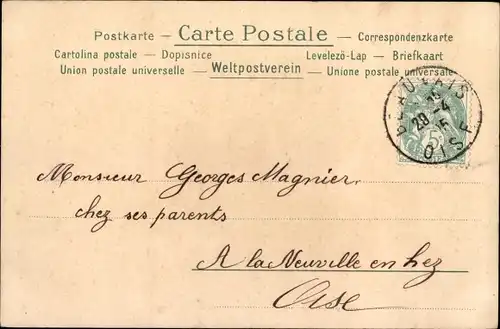 Postkarte — Carte Postale — Correspondenzkarte
Cartolina postale — Dopisnice Levelező-Lap — Briefkaart
Union postale universelle — Weltpostverein — Unione postale universale
BEAUVAIS
28 -4
5
OISE
Monsieur Georges Magnier
chez ses parents
A la Neuville en hez
Oise